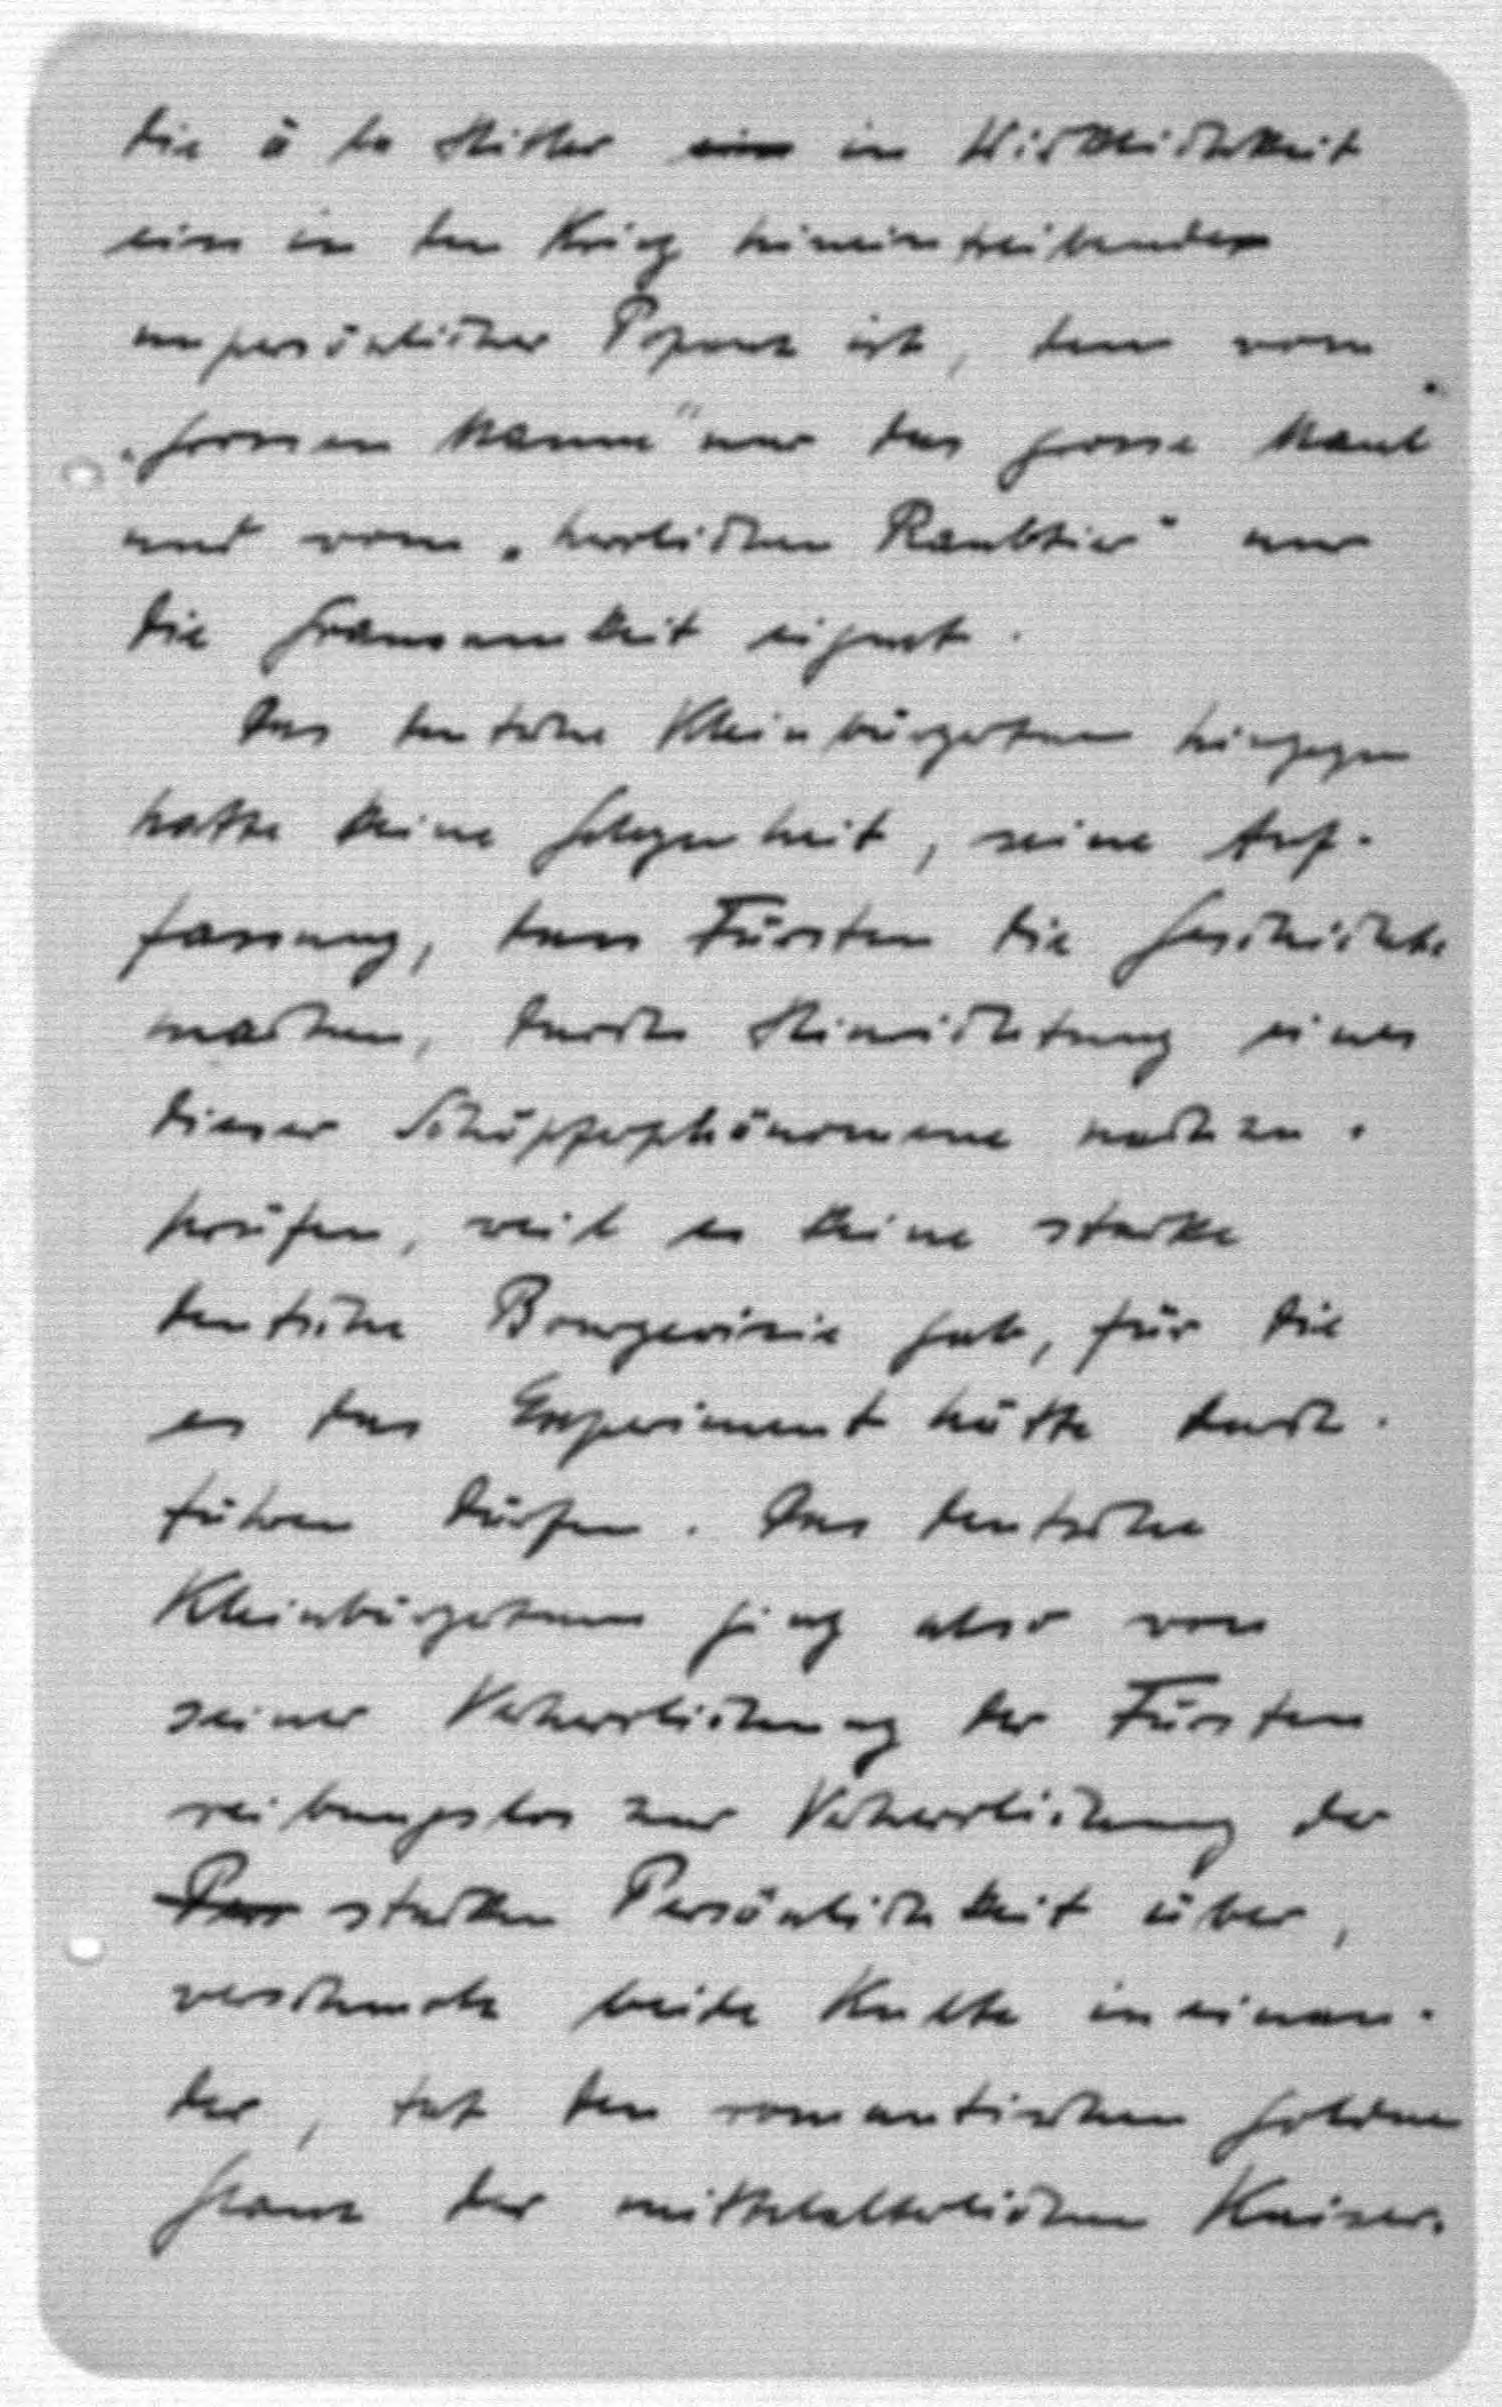 die à la Hitler ein in Wirklichkeit
ein in den Krieg hineintreibender
unpersönlicher Popanz ist, dem vom
„grossen Manne" nur das grosse Maul
und vom „herrlichen Raubtier" nur
die Grausamkeit eignet.
Das deutsche Kleinbürgertum hingegen
hatte keine Gelegenheit, seine Auf-
fassung, dass Fürsten die Geschichte
machen, durch Hinrichtung eines
dieser Schöpferphänomene nachzu-
prüfen, weil es keine starke
deutsche Bourgeoisie gab, für die
es das Experiment hätte durch-
führen dürfen. Das deutsche
Kleinbürgertum ging also von
seiner Verherrlichung der Fürsten
reibungslos zur Verherrlichung der
Pers starken Persönlichkeit über,
beide Kulte ineinan-
der, tat den romantischen goldnen
Glanz der mittelalterlichen Kaiser-